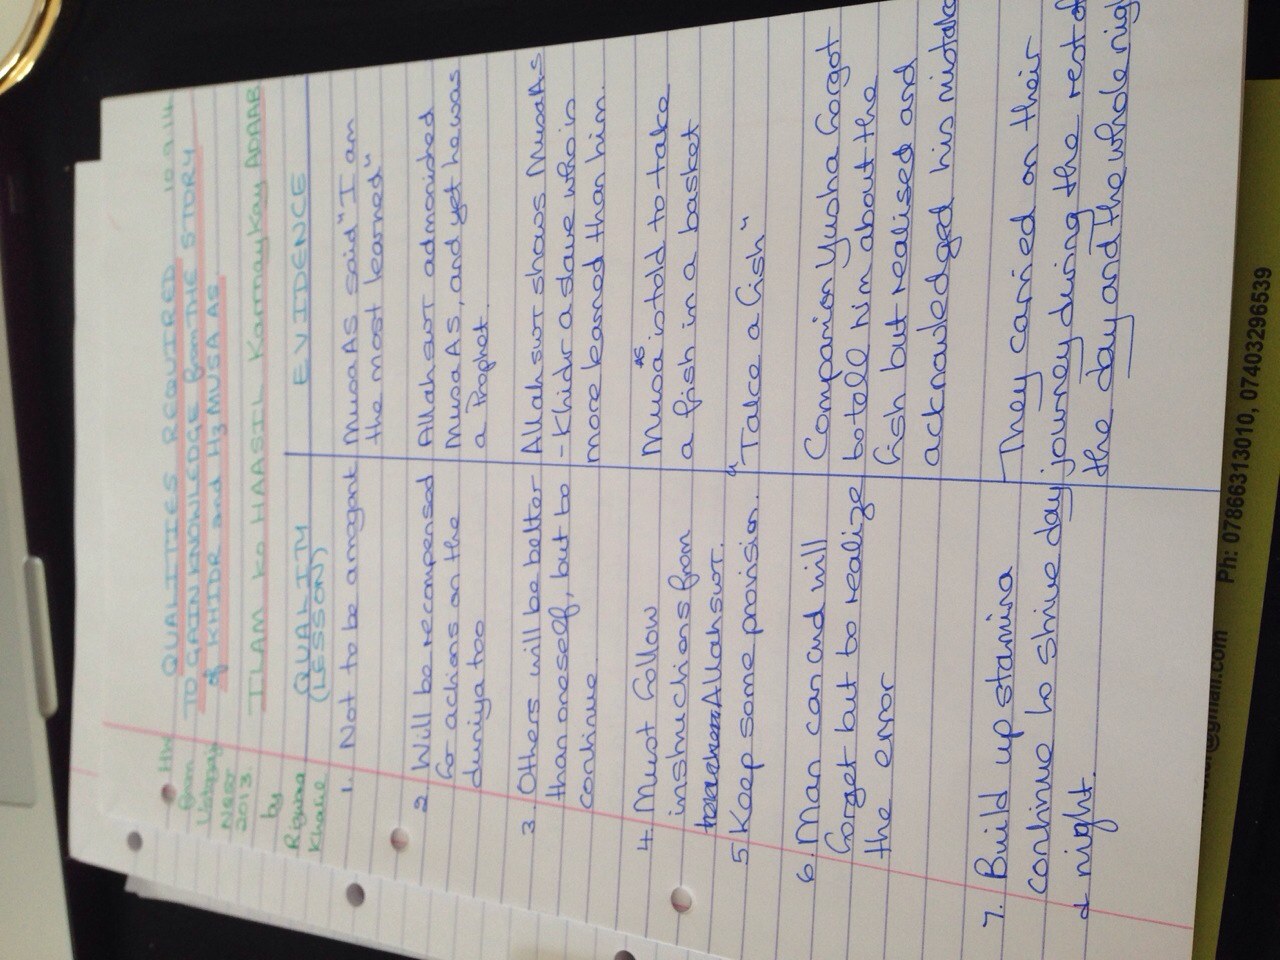 QUALITIES REQUIRED 10.9.14
TO GAIN KNOWLEDGE from THE STORY
of KHIDR and Hz MUSA AS
ILAM ko HAASIL Karnay Kay ADAAB
from
2013.
by
Rizwana
Khalie
QUALITY EVIDENCE
(LESSON)
1. Not to be arrogant Musa AS said "I am
the most learned"
2 Will be recompensed Allah swt admonished
for actions on the Musa AS, and yet he was
duniya too a Prophet.
3. Others will be better Allah swt shows Musa As
than oneself, but to - Khidr a slave who is
continue more learned than him.
4. Must follow Musa AS is told to take
instructions from a fish in a basket
Allah swt.
5. Keep some provision. "Take a fish"
6. Man can and will Companion Yusha forgot
forget but to realize to tell him about the
the error fish but realised and
acknowledged his mistake
7. Build up stamina They carried on their
continue to strive day journey during the rest of
& night. the day and the whole nig
@gmail.com Ph: 07866313010, 07403296539